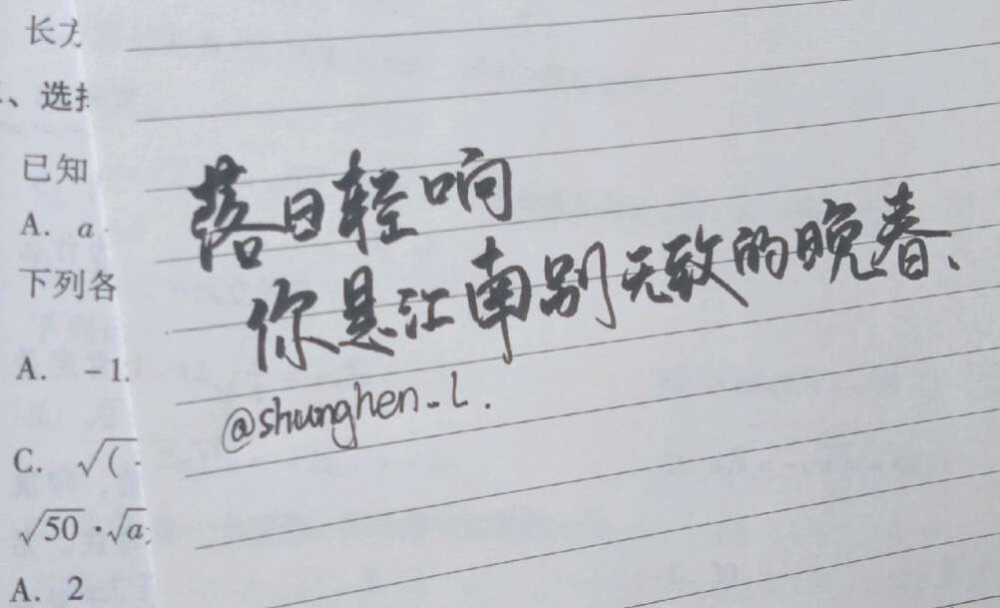 长方
、选择
已知
A. a
下列各
A. -1.
C. √(-
√50·√a
A. 2
落日轻响
你是江南别无致的晚春、
@shunghen_l.